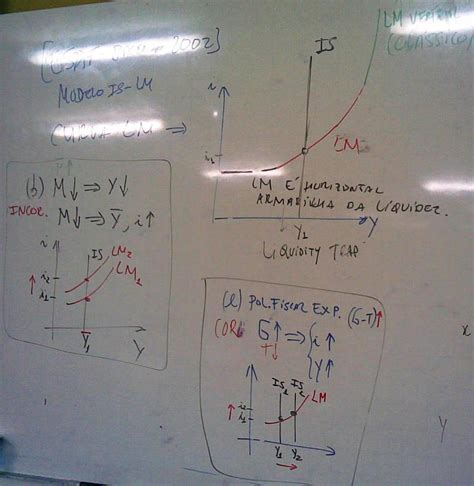 2002]
MODELO IS-LM
CURVA LM ⇒
IS
LM VERTICAL
(CLÁSSICO)
i
i₁
LM
Y₁
Y
LM É HORIZONTAL
ARMADILHA DA LIQUIDEZ.
LIQUIDITY TRAP
(b) M↓ ⇒ Y↓
INCOR. M↓ ⇒ Y̅, i↑
i
IS
LM₂
LM₁
i₂
i₁
Y̅₁
Y
(e) POL. FISCAL EXP. (G-T)↑
G↑ ⇒ { i↑
T↓ { Y↑
IS₁ IS₂
LM
i₂
i₁
Y₁ Y₂
x
Y